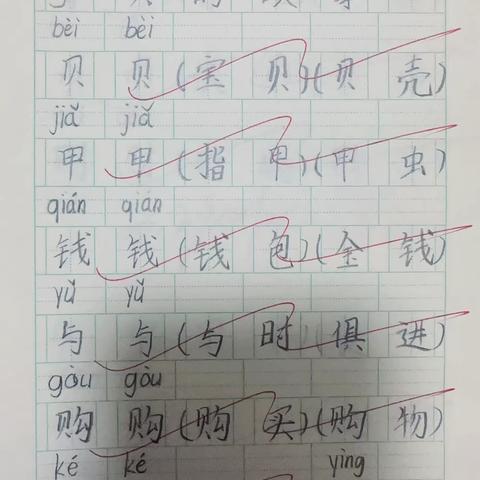 bèi bèi
贝 贝(宝贝)(贝壳)
jiǎ jiǎ
甲 甲(指甲)(甲虫)
qián qián
钱 钱(钱包)(金钱)
yǔ yǔ
与 与(与时俱进)
gòu gòu
购 购(购买)(购物)
ké ké yìng